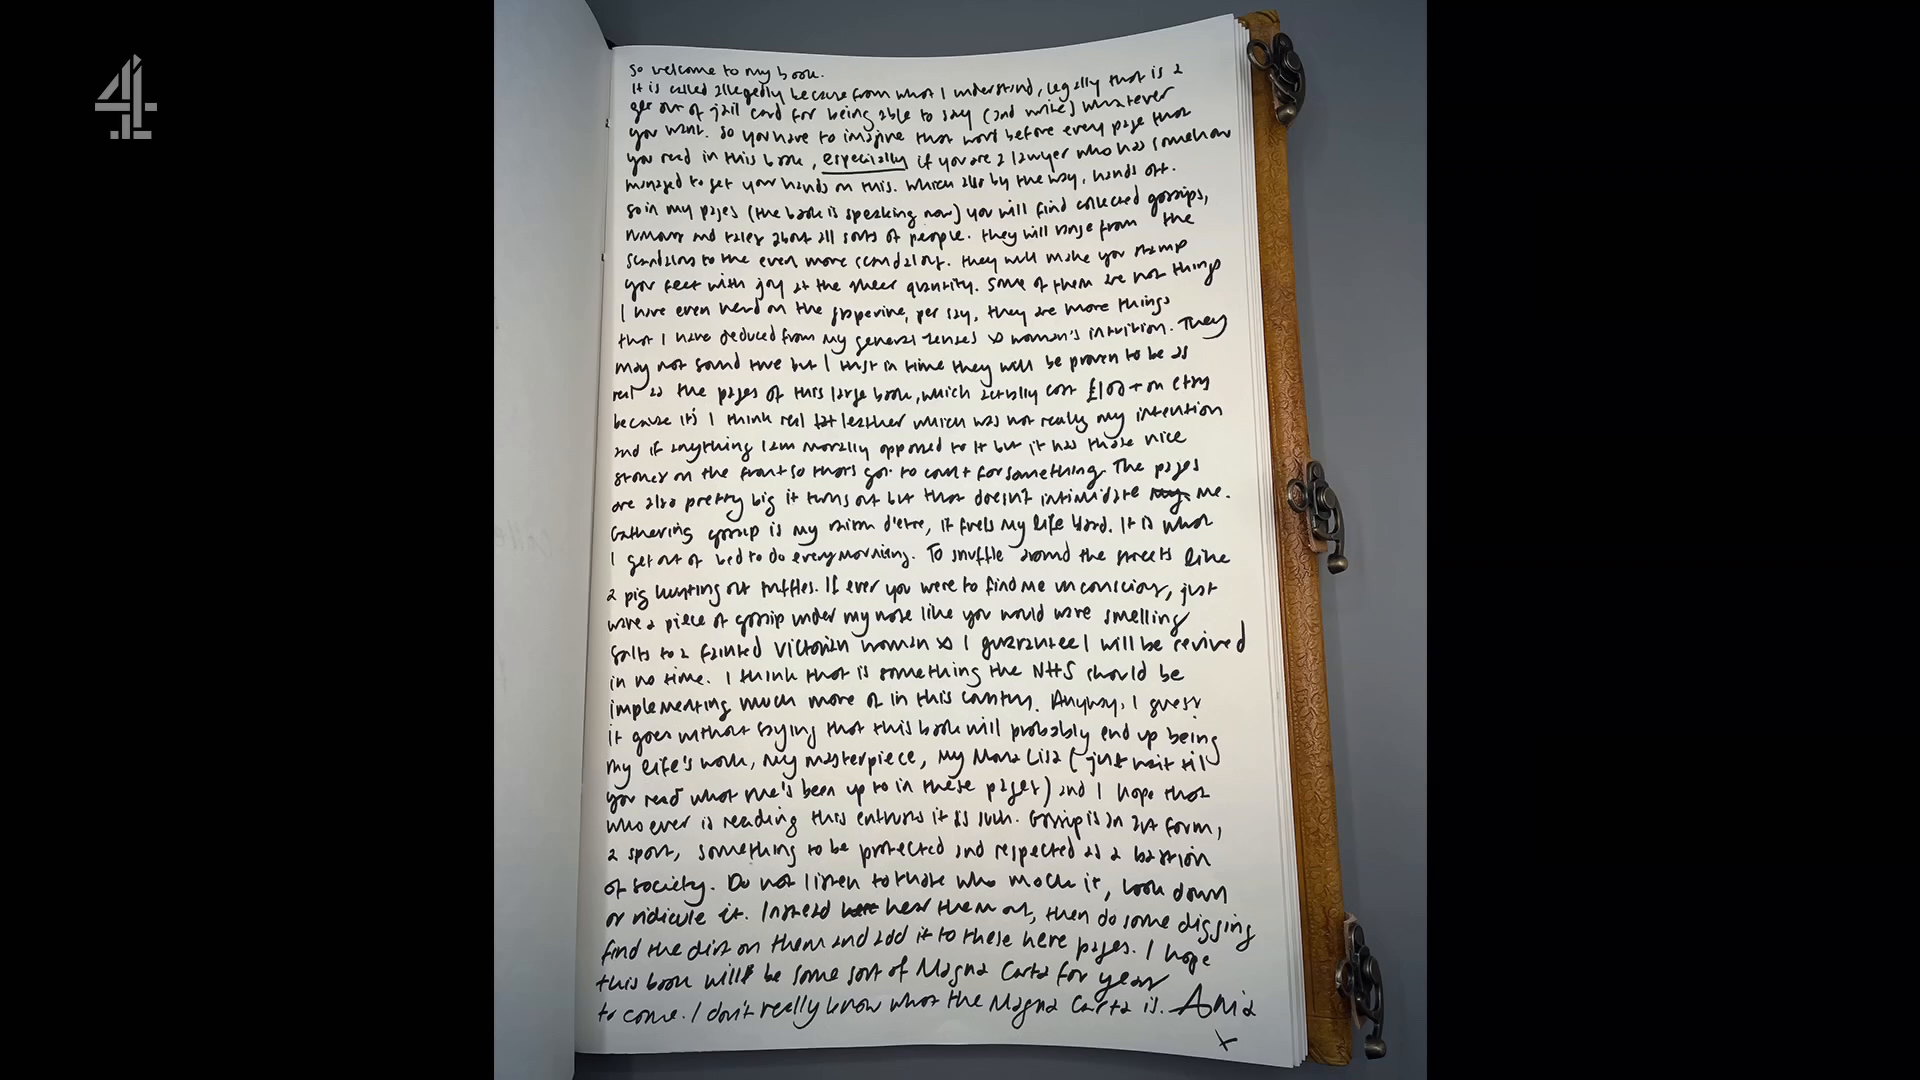 4
So welcome to my book.
It is called allegedly because from what I understand, legally that is a
get out of jail card for being able to say (and write) whatever
you want. So you have to imagine that word before every page that
you read in this book, especially if you are a lawyer who has somehow
managed to get your hands on this. Which also by the way, hands off.
So in my pages (the book is speaking now) you will find collected gossips,
rumours and tales about all sorts of people. They will range from the
scandalous to the even more scandalous. They will make you stamp
your feet with joy at the sheer quantity. Some of them are not things
I have even heard on the grapevine, per say, they are more things
that I have deduced from my general senses & woman's intuition. They
may not sound true but I trust in time they will be proven to be as
real as the pages of this large book, which actually cost £100+ on etsy
because it's I think real leather which was not really my intention
and if anything I am morally opposed to it but it has those nice
stones on the front so that's got to count for something. The pages
are also pretty big it turns out but that doesn't intimidate me.
Gathering gossip is my raison d'etre, it fuels my life blood. It is what
I get out of bed to do every morning. To snuffle around the streets like
a pig hunting out truffles. If ever you were to find me unconscious, just
wave a piece of gossip under my nose like you would wave smelling
salts to a fainted Victorian woman & I guarantee I will be revived
in no time. I think that is something the NHS should be
implementing much more of in this country. Anyway, I guess
it goes without saying that this book will probably end up being
my life's work, my masterpiece, my Mona Lisa (just wait til
you read what she's been up to in these pages) and I hope that
who ever is reading this enthrusts it as such. Gossip is an art form,
a sport, something to be protected and respected as a bastion
of society. Do not listen to those who mock it, look down
or ridicule it. Instead hear them out, then do some digging
find the dirt on them and add it to these here pages. I hope
this book will be some sort of Magna Carta for years
to come. I don't really know what the Magna Carta is. Ania
x